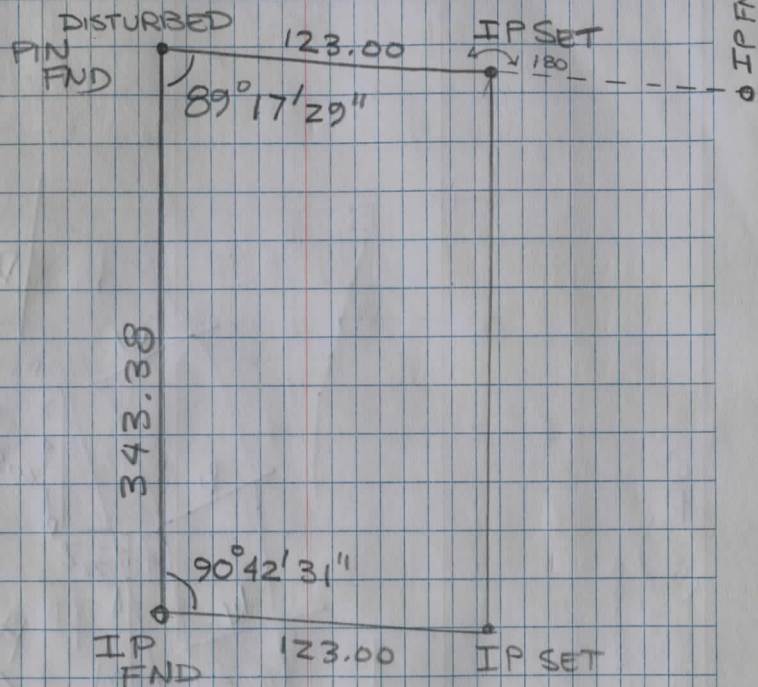 DISTURBED
PIN
FND
123.00
IP SET
180
IP F
89°17'29"
343.38
90°42'31"
IP
FND
123.00
IP SET